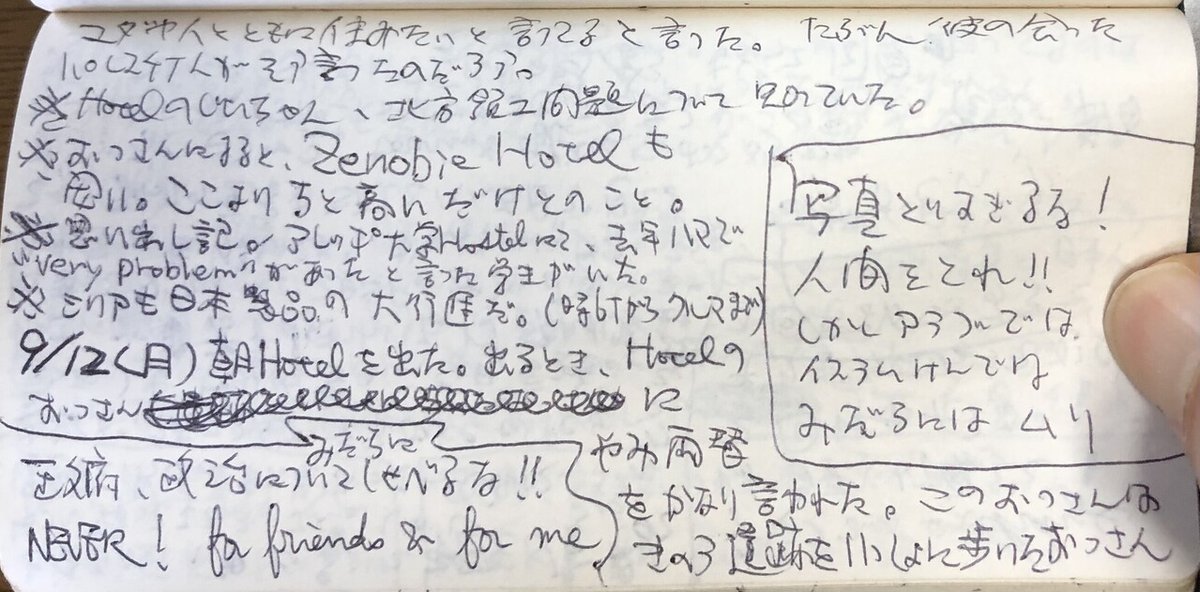 ユダヤ人とともに住みたいと言ってると言った。たぶん彼の会った
パレスチナ人がそう言ったのだろう。
※Hotelのじいちゃん、北方領土問題について知っていた。
※おっさんによると、Zenobie Hotelも
悪い。ここよりちと高いだけとのこと。
※思い出し記。アレッポ大学Hostelにて、去年ハマで
"very problem"があったと言った学生がいた。
※シリアも日本製品の大行進だ。(時計からクルマまで)
9/12(月)朝Hotelを出た。出るとき、Hotelの
おっさん に
みだらに
政府、政治についてしゃべるな!!
NEVER! for friends & for me.
やみ両替
をかなり言われた。このおっさんは
きのう遺跡をいっしょに歩いたおっさん
写真とりすぎるな!
人間をとれ!!
しかしアラブでは
イスラムけんでは
みだらにはムリ